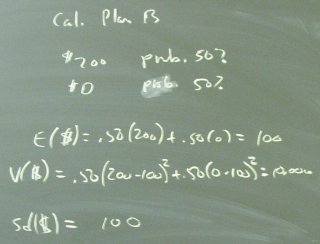 Cal. Plan B
$200 prob. 50%
$0 prob. 50%
E($) = .50(200) + .50(0) = 100
V($) = .50(200-100)² + .50(0-100)² = 10000
sd($) = 100